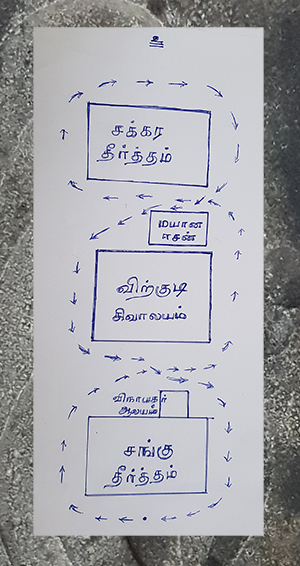 உ
சக்கர
தீர்த்தம்
மயான
ஈசன்
விற்குடி
சிவாலயம்
விநாயகர்
ஆலயம்
சங்கு
தீர்த்தம்